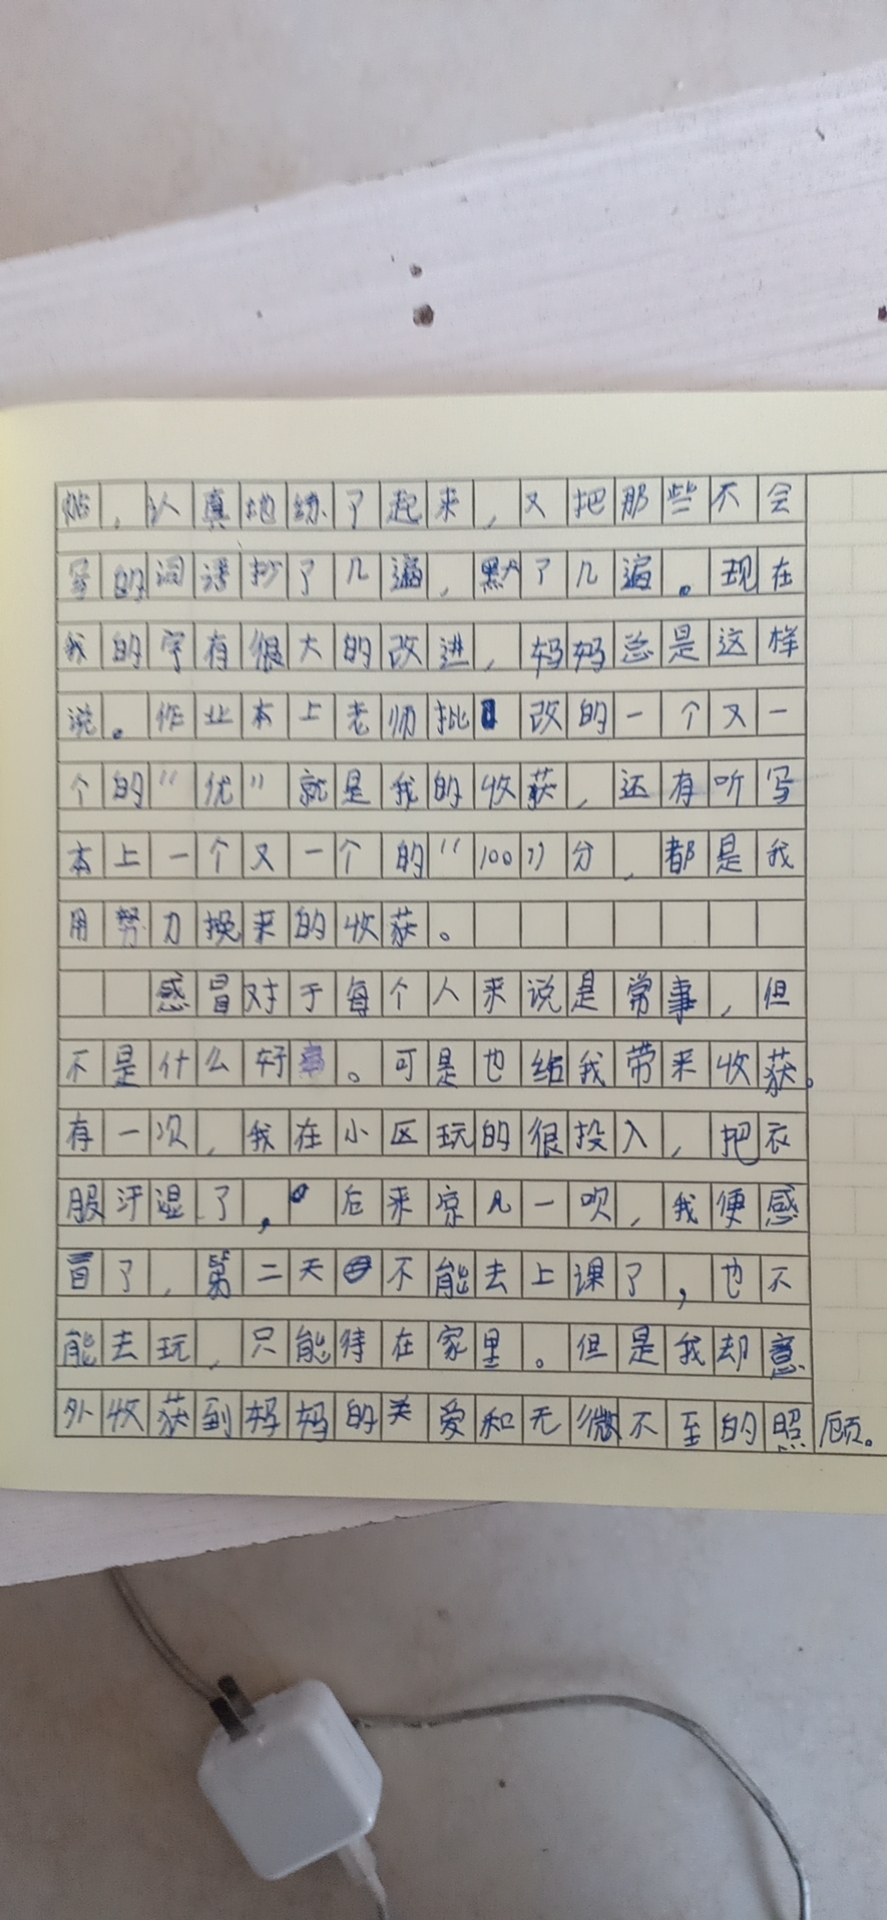 帖，认真地练了起来，又把那些不会
写的词语抄了几遍，默了几遍。现在
我的字有很大的改进，妈妈总是这样
说。作业本上老师批改的一个又一
个的“优”就是我的收获，还有听写
本上一个又一个的“100”分，都是我
用努力换来的收获。
感冒对于每个人来说是常事，但
不是什么好事。可是也给我带来收获。
有一次，我在小区玩的很投入，把衣
服汗湿了，后来凉风一吹，我便感
冒了，第二天不能去上课了，也不
能去玩，只能待在家里。但是我却意
外收获到妈妈的关爱和无微不至的照顾。